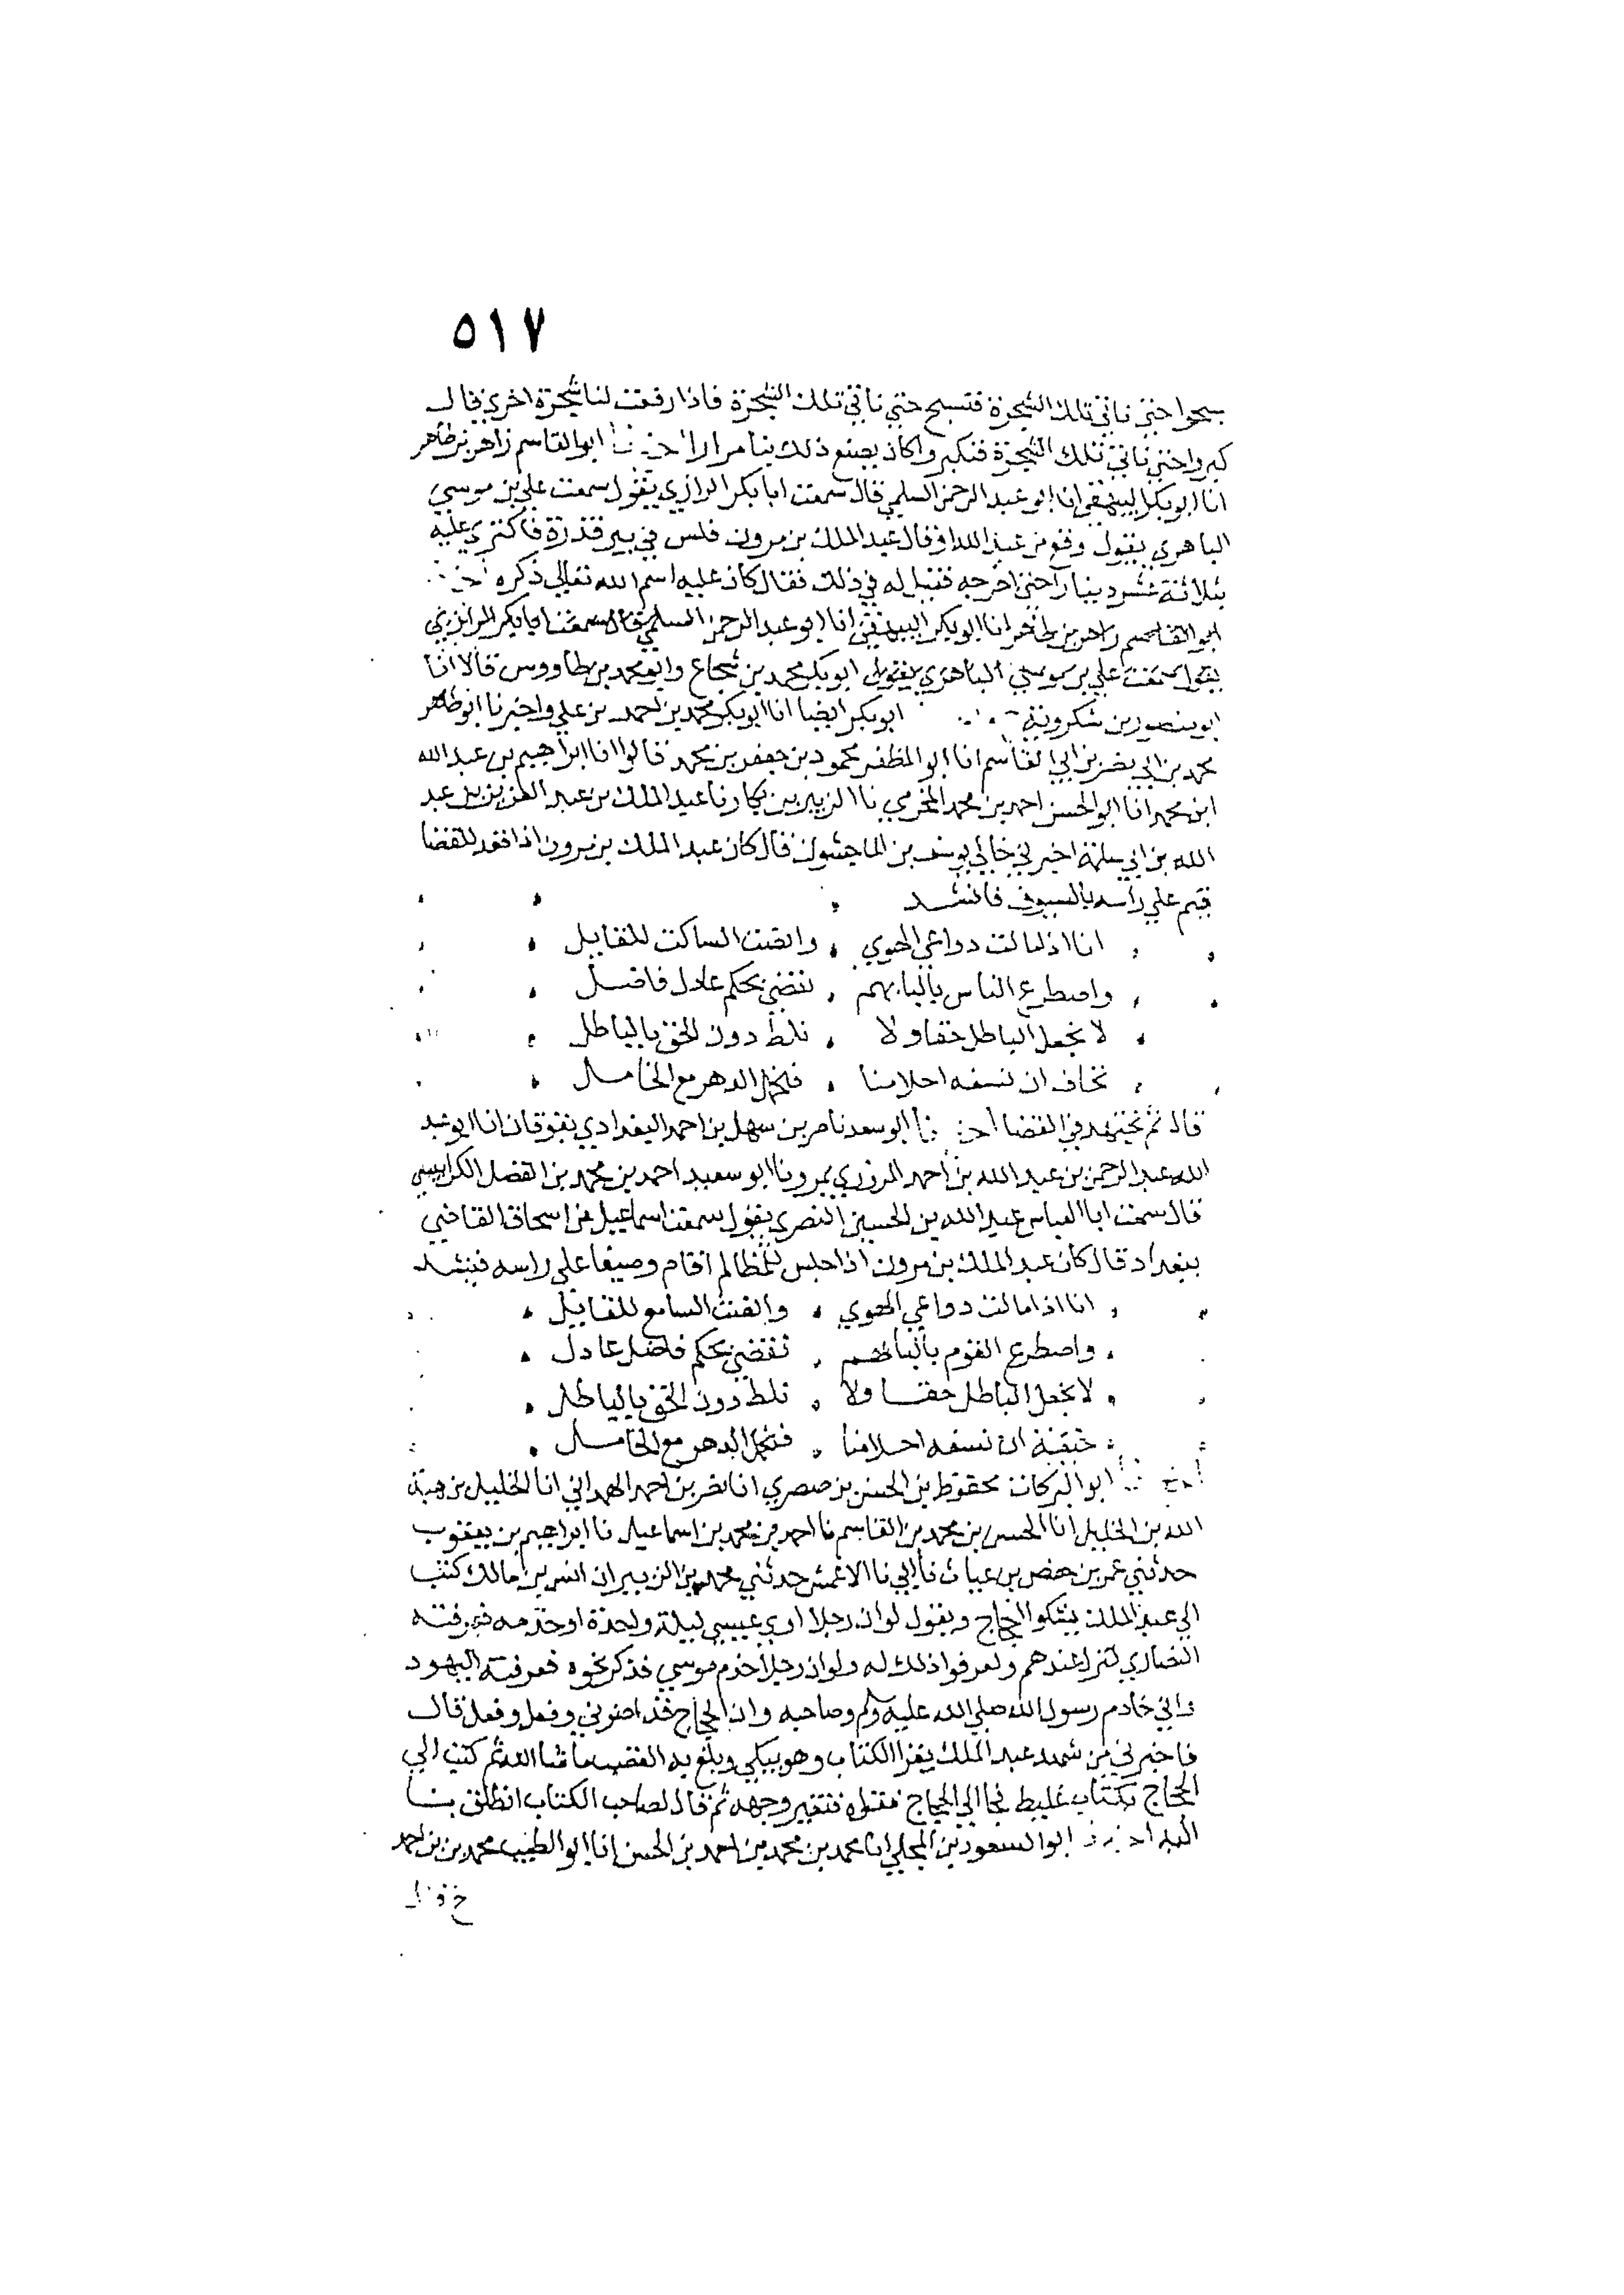 ٥١٧
سبحوا حتى ناتي تلك الشجرة فنسبح حتى ناتي تلك الشجرة فاذا رفعت لنا شجرة اخرى قال
كبروا حتى ناتي تلك الشجرة فنكبر وكان يصنع ذلك بنا مرارا اخبرنا ابو القاسم زاهر بن طاهر
انا ابو بكر البيهقي انا ابو عبد الرحمن السلمي قال سمعت ابا بكر الرازي يقول سمعت علي بن موسى
الباهري يقول وقع من عبد الله او قال عبد الملك بن مرون فلس في بير قذرة فاكترى عليه
بثلاثة عشر دينارا حتى اخرجه فقيل له في ذلك فقال كان عليه اسم الله تعالى ذكره
ابو القاسم زاهر بن طاهر انا ابو بكر البيهقي انا ابو عبد الرحمن السلمي قال سمعت ابا بكر الرازي
يقول سمعت علي بن موسى الباهري يقول ابو بكر محمد بن شجاع وابو محمد بن طاووس قالا انا
ابو منصور بن شكرويه ابو بكر ايضا انا ابو بكر محمد بن احمد بن علي واخبرنا ابو طاهر
محمد بن ابي نصر بن ابي القاسم انا ابو المظفر محمود بن جعفر بن محمد قالوا انا ابراهيم بن عبد الله
ابن محمد انا ابو الحسن احمد بن محمد المخرمي نا الزبير بن بكار نا عبد الملك بن عبد العزيز بن عبد
الله بن ابي سلمة اخبرني خالي يوسف بن الماجشون قال كان عبد الملك بن مرون اذا قعد للقضا
قيم على راسه بالسيوف فانشد
انا اذا مالت دواعي الهوى وانصت الساكت للقايل
واصطرع الناس بالبابهم نقضي بحكم عادل فاضل
لا نجعل الباطل حقا ولا نلط دون الحق بالباطل
نخاف ان نسفه احلامنا فنخمل الدهر مع الخامل
قال ثم يجتهد في القضا اخبرنا ابو سعد ناصر بن سهل بن احمد البغدادي بنوقان انا ابو عبد
الله عبد الرحمن بن عبد الله بن احمد المروزي بمرو نا ابو سعيد احمد بن محمد بن الفضل الكرابيسي
قال سمعت ابا العباس عبد الله بن الحسين النصري يقول سمعت اسماعيل بن اسحاق القاضي
ببغداد قال كان عبد الملك بن مرون اذا جلس للمظالم اقام وصيفا على راسه فينشد
انا اذا مالت دواعي الهوى وانصت السامع للقايل
واصطرع القوم بالبابهم نقضي بحكم فاضل عادل
لا نجعل الباطل حقا ولا نلط دون الحق بالباطل
خيفة ان نسفه احلامنا فنخمل الدهر مع الخامل
اخبرنا ابو البركات محفوظ بن الحسن بن صصرى انا نصر بن احمد الهمداني انا الخليل بن هبة
الله بن الخليل انا الحسن بن محمد بن القاسم نا احمد بن محمد بن اسماعيل نا ابراهيم بن يعقوب
حدثني عمر بن حفص بن غياث نا ابي نا الاعمش حدثني محمد بن الزبير ان انس بن مالك كتب
الى عبد الملك يشكو الحجاج ويقول لو ان رجلا اوى عيسى ليلة واحدة او خدمه فعرفته
النصارى لنزل عندهم ولعرفوا ذلك له ولو ان رجلا خدم موسى فذكر نحوه فعرفته اليهود
واني خادم رسول الله صلى الله عليه وسلم وصاحبه وان الحجاج قد اضر بي وفعل وفعل قال
فاخبرني من شهد عبد الملك يقرا الكتاب وهو يبكي وبلغ به الغضب ما شا الله ثم كتب الى
الحجاج بكتاب غليظ فجا الى الحجاج فقراه فتغير وجهه ثم قال لصاحب الكتاب انطلق بنا
اليه ابو السعود بن المجلي انا محمد بن محمد بن احمد بن الحسن انا ابو الطيب محمد بن بن احمد